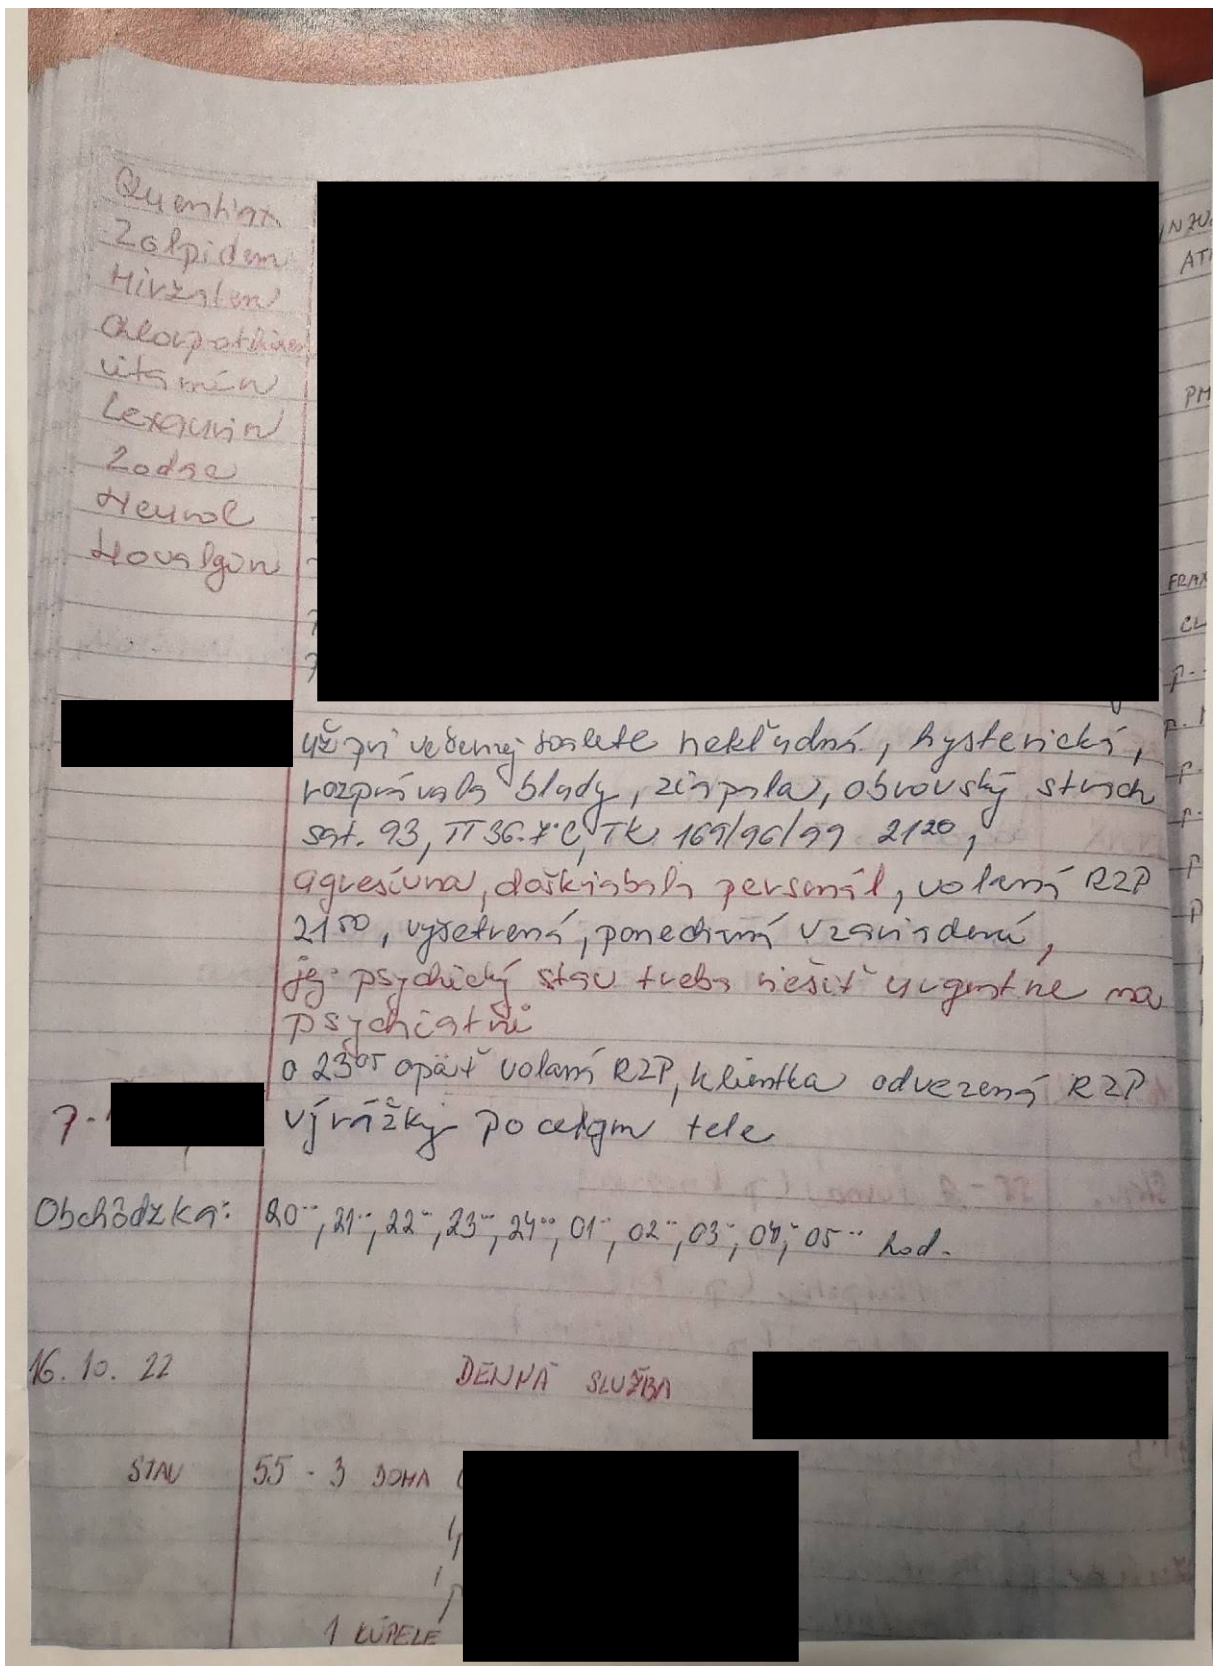 Quentiax
Zolpidem
Mirzaten
Chlorprothixen
vitamín
Lexaurin
Zodac
Neurol
Novalgin
už pri večernej toalete nekľudná, hysterická,
rozprávala bludy, ziapala, obrovský strach
sat. 93, TT 36.7°C, TK 169/96/99 21²⁰,
agresívna, doškriabala personál, volaná RZP
21⁵⁰, vyšetrená, ponechaná v zariadení,
jej psychický stav treba riešiť urgentne na
psychiatrii
o 23⁰⁵ opäť volaná RZP, klientka odvezená RZP
7.
výrážky po celom tele
Obchôdzka: 20⁰⁰, 21⁰⁰, 22⁰⁰, 23⁰⁰, 24⁰⁰, 01⁰⁰, 02⁰⁰, 03⁰⁰, 04⁰⁰, 05⁰⁰ hod.
16. 10. 22 DENNÁ SLUŽBA
STAV 55 - 3 DOMA
1 KÚPELE